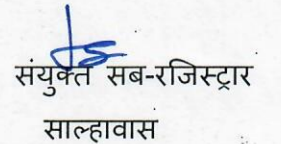 संयुक्त सब-रजिस्ट्रार
साल्हावास